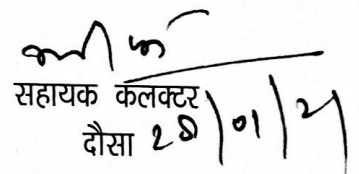 सहायक कलक्टर
दौसा 28/01/21